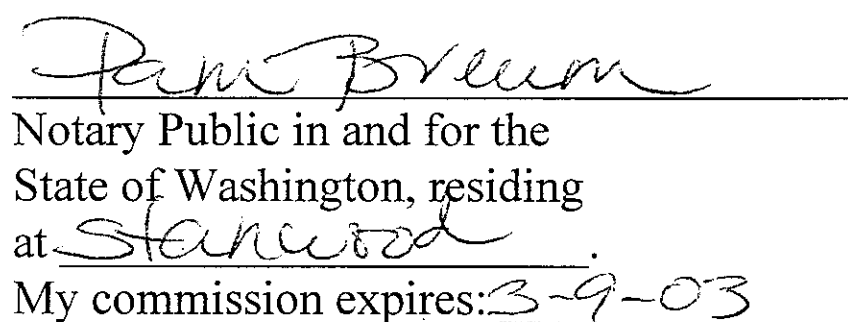 Pam
Notary Public in and for the
State of Washington, residing
at Stanwood.
My commission expires: 3-9-03